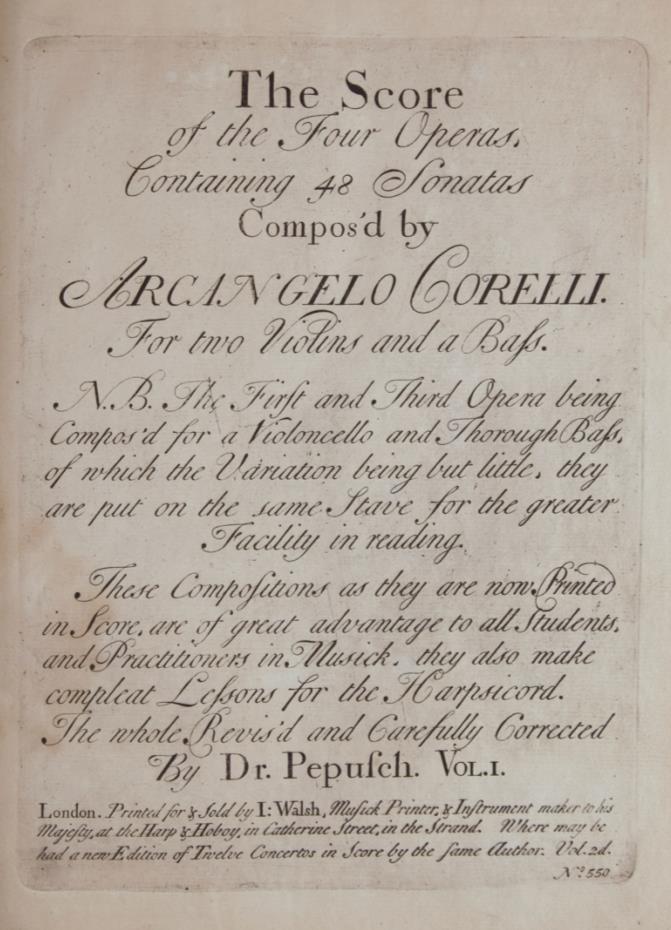 The Score
of the Four Operas,
Containing 48 Sonatas
Compos'd by
ARCANGELO CORELLI.
For two Violins and a Baſs.
N.B. The Firſt and Third Opera being
Compos'd for a Violoncello and Thorough Baſs,
of which the Variation being but little, they
are put on the same Stave for the greater
Facility in reading.
These Compoſitions as they are now Printed
in Score, are of great advantage to all Students,
and Practitioners in Musick, they also make
compleat Leſsons for the Harpsicord.
The whole Revis'd and Carefully Corrected
By Dr. Pepuſch. VOL.I.
London. Printed for & Sold by I: Walsh, Muſick Printer, & Inſtrument maker to his
Majeſty, at the Harp & Hoboy, in Catherine Street, in the Strand. Where may be
had a new Edition of Twelve Concertos in Score by the ſame Author. Vol. 2d.
No. 550